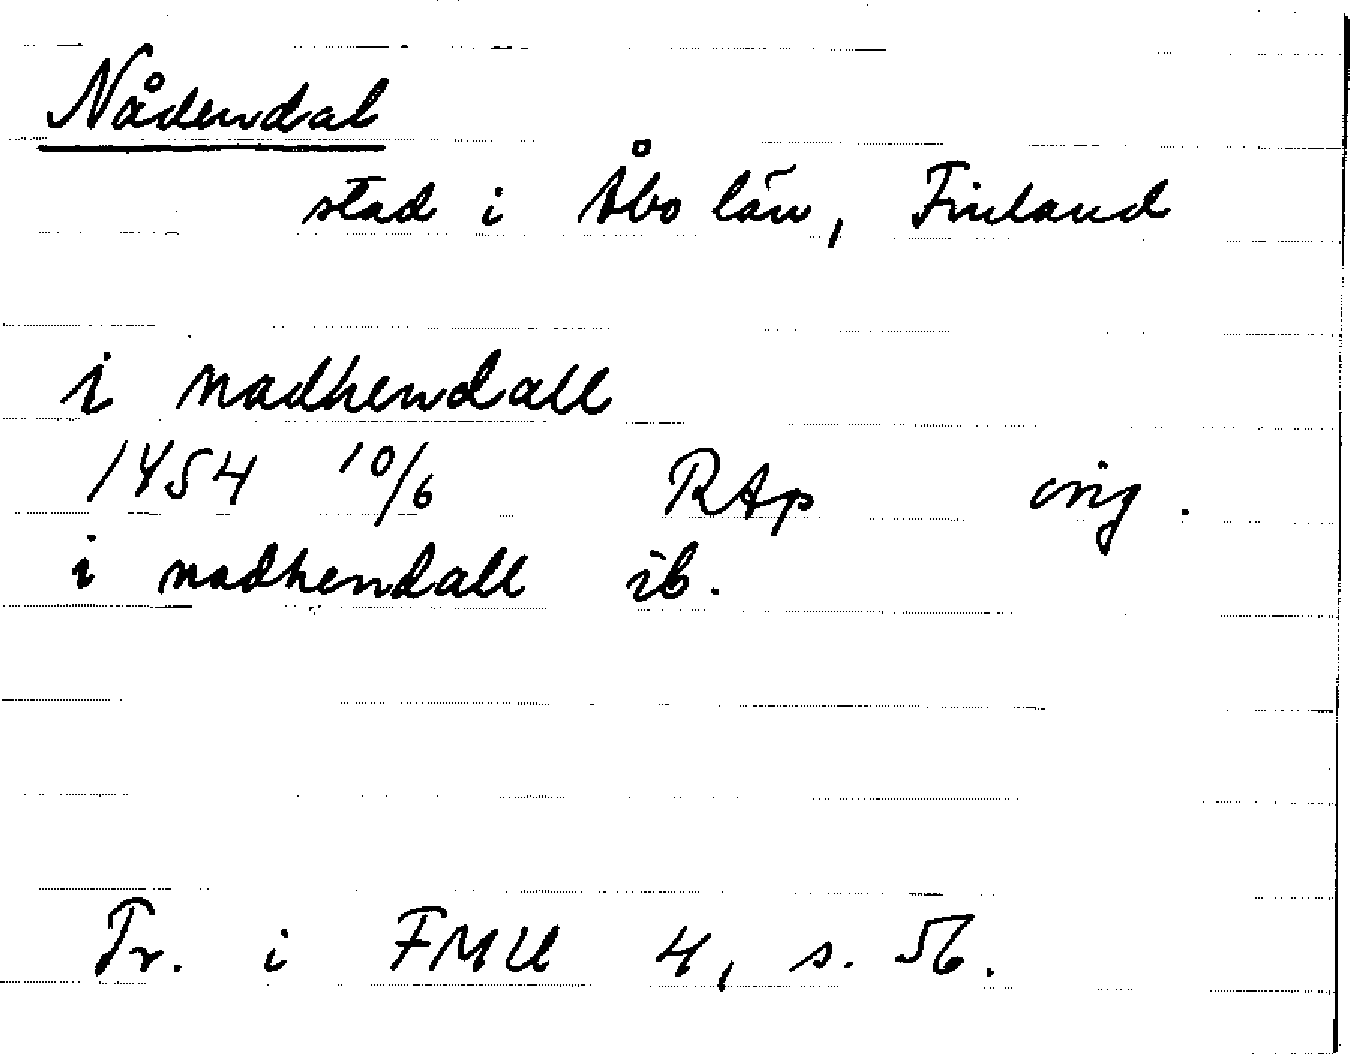 Nådendal
stad i Åbo län, Finland
i nadhendall
1454 10/6 RAp orig.
i nadhendall ib.
Tr. i FMU 4, s. 56.